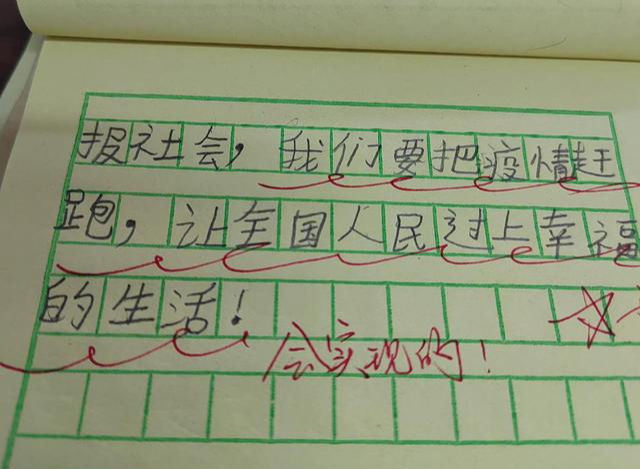 报社会,我们要把疫情赶
跑,让全国人民过上幸福
的生活!
会实现的!